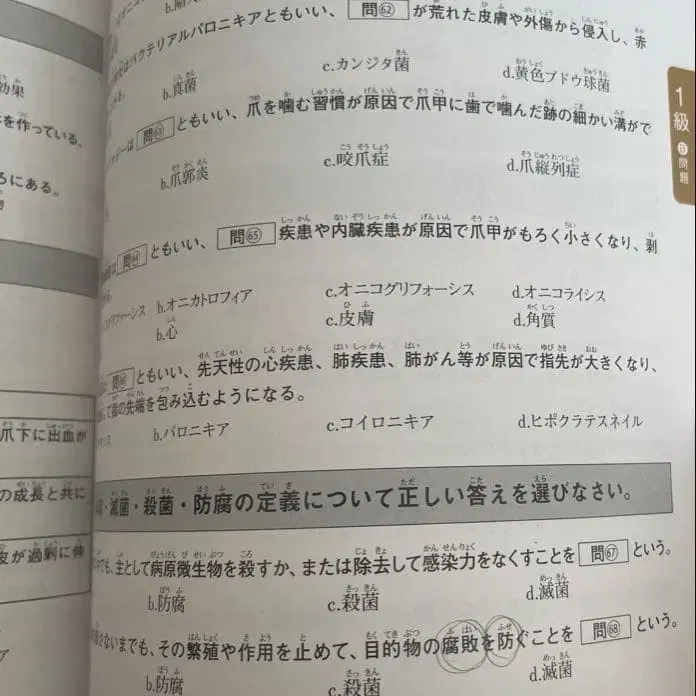 効果
を作っている。
ろにある。
爪下に出血が
の成長と共に
皮が過剰に伸
1級
B問題
バクテリアルパロニキアともいい、問62が荒れた皮膚や外傷から侵入し、赤
b.真菌 c.カンジタ菌 d.黄色ブドウ球菌
は問63ともいい、爪を噛む習慣が原因で爪甲に歯で噛んだ跡の細かい溝がで
b.爪郭炎 c.咬爪症 d.爪縦列症
は問64ともいい、問65疾患や内臓疾患が原因で爪甲がもろく小さくなり、剥
b.オニカトロフィア c.オニコグリフォーシス d.オニコライシス
b.心 c.皮膚 d.角質
問66ともいい、先天性の心疾患、肺疾患、肺がん等が原因で指先が大きくなり、
指の先端を包み込むようになる。
b.パロニキア c.コイロニキア d.ヒポクラテスネイル
・滅菌・殺菌・防腐の定義について正しい答えを選びなさい。
でも、主として病原微生物を殺すか、または除去して感染力をなくすことを問67という。
b.防腐 c.殺菌 d.滅菌
さないまでも、その繁殖や作用を止めて、目的物の腐敗を防ぐことを問68という。
b.防腐 c.殺菌 d.滅菌